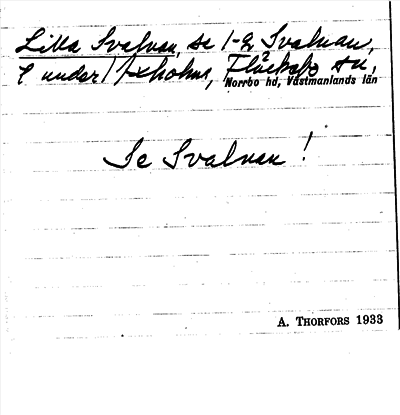 Lilla Svalvan, se 1-2 Svalvan,
under Axholms, Fläckebo sn,
Norrbo hd, Västmanlands län
Se Svalvan!
A. THORFORS 1933